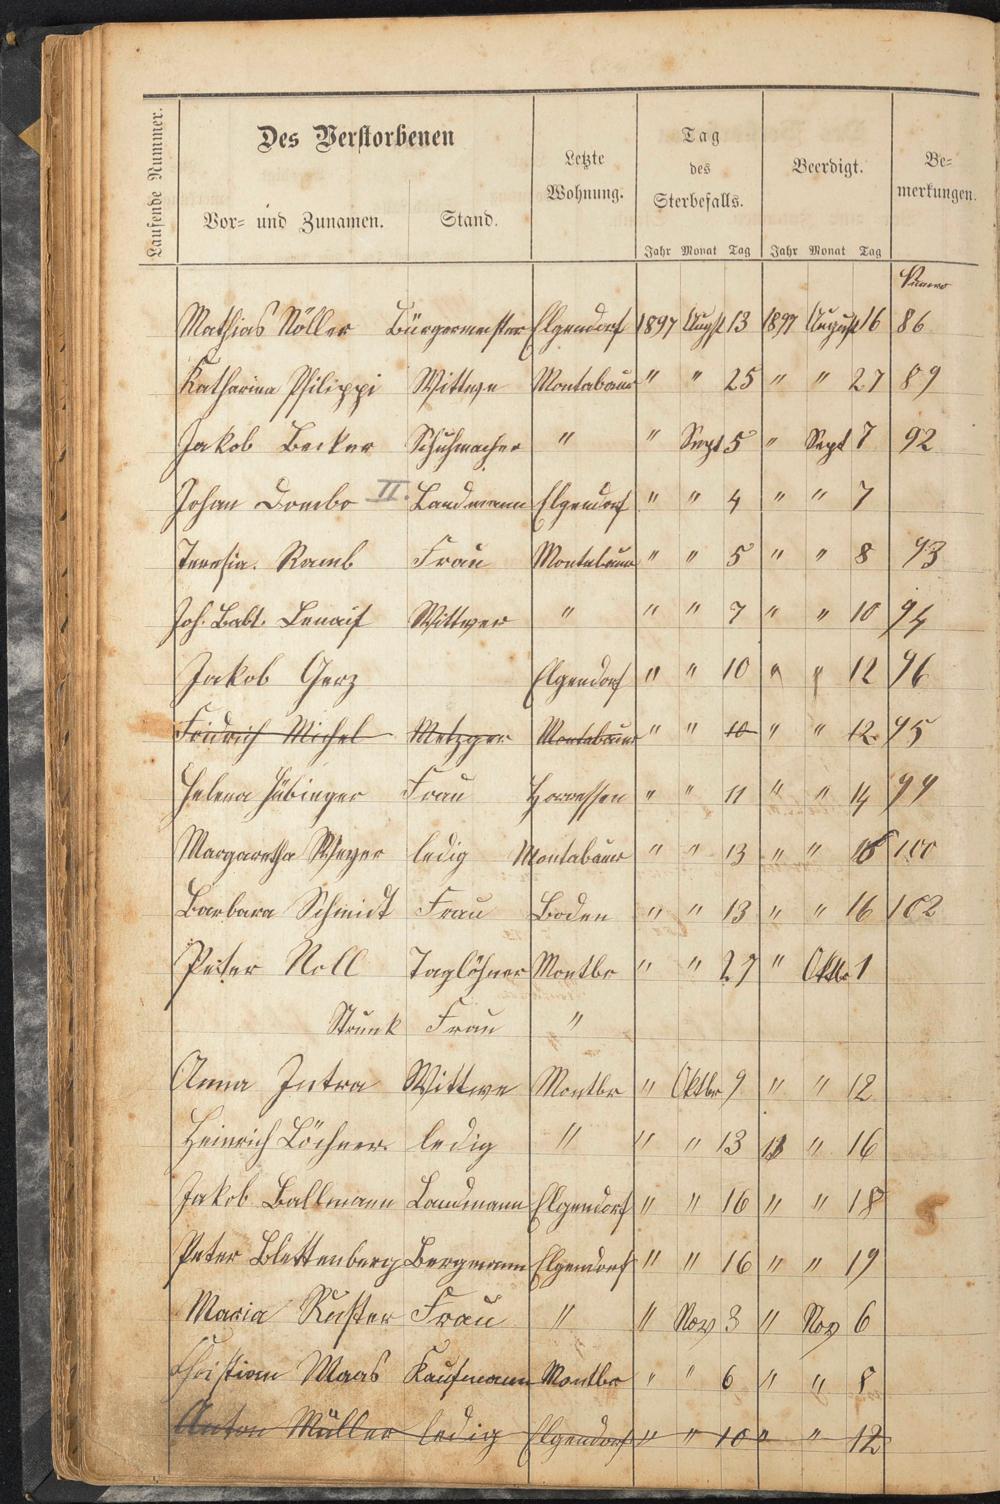 Laufende Nummer.
Des Verstorbenen
Vor- und Zunamen.
Stand.
Letzte
Wohnung.
Tag
des
Sterbefalls.
Jahr Monat Tag
Beerdigt.
Jahr Monat Tag
Be-
merkungen.
Mathias Nöller Bürgermeister Elgendorf 1897 Augst 13 1897 August 16 86
Katharina Philippi Wittwe Montabaur " " 25 " " 27 89
Jakob Becker Schuhmacher " " Sept 5 " Sept 7 92
Johan Dombo II. Landmann Elgendorf " " 4 " " 7
Teresia. Ramb Frau Montabaur " " 5 " " 8 93
Joh. Babt. Lenaif Wittwer " " " 7 " " 10 94
Jakob Gerz Elgendorf " " 10 " " 12 96
Fridrich Michel Metzger Montabaur " " 10 " " 12 95
Helena Hübinger Frau Horressen " " 11 " " 14 99
Margaretha Meyer ledig Montabaur " " 13 " " 16 100
Barbara Schmidt Frau Boden " " 13 " " 16 102
Peter Noll Taglöhner Montbr " " 27 " Oktbr 1
Strunk Frau "
Anna Intra Wittwe Montbr " Oktbr 9 " " 12
Heinrich Löchner ledig " " " 13 " 16
Jakob Ballmann Landmann Elgendorf " " 16 " " 18
Peter Blettenberg Bergmann Elgendorf " " 16 " " 19
Maria Kuster Frau " " Nov 3 " Nov 6
Christian Maas Kaufmann Montbr " " 6 " " 8
Anton Müller ledig Elgendorf " " 10 " " 12